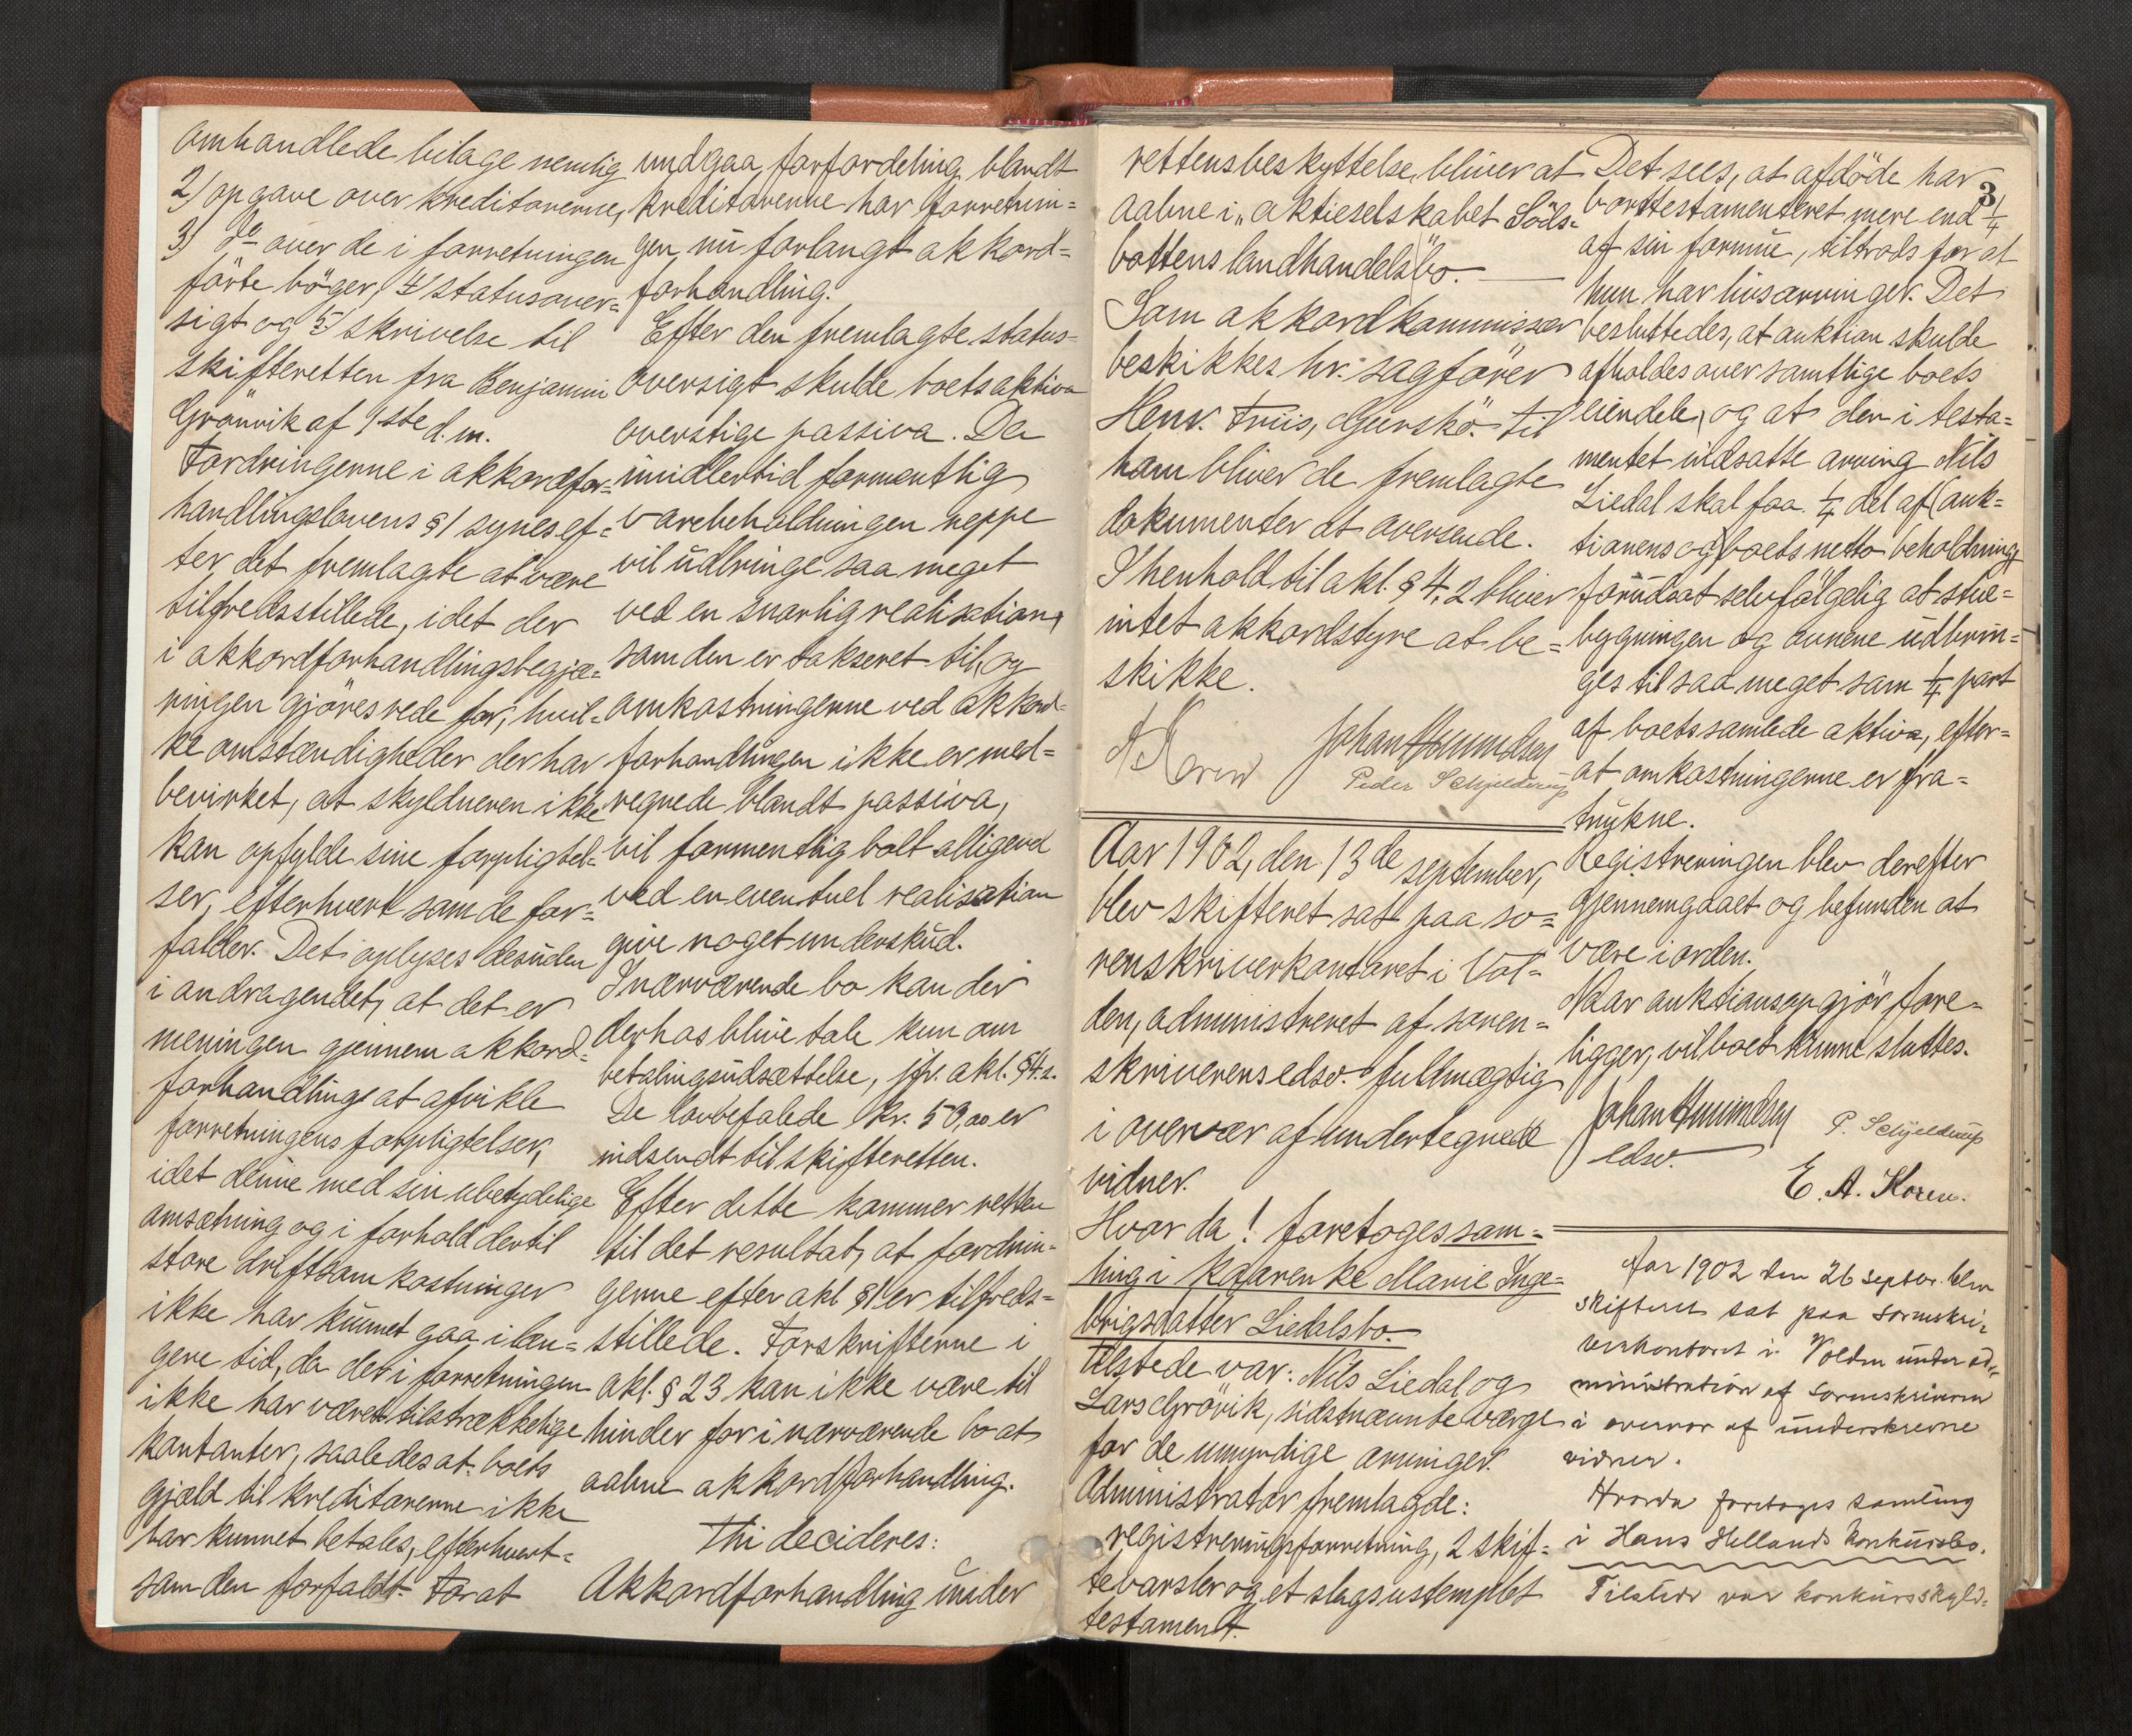 omhandlede bilage nemlig
2) opgave over kreditorerne,
3) Do over de i forretningen
førte bøger, 4) statusover=
sigt og 5) skrivelse til
skifteretten fra Benjamin
Grønvik af 1ste d. m.
Fordringerne i akkordfor=
handlingslovens § 1 synes ef=
ter det fremlagte at være
tilfredsstillede, idet der
i akkordforhandlingsbegjæ=
ringen gjøres rede for, hvil=
ke omstændigheder der har
bevirket, at skyldneren ikke
kan opfylde sine forpligtel=
ser, efterhvert som de for=
falder. Det oplyses desuden
i andragendet, at det er
meningen gjennem akkord=
forhandling at afvikle
forretningens forpligtelser,
idet denne med sin ubetydelige
omsætning og i forhold dertil
store driftsomkostninger
ikke har kunnet gaa i læn=
gere tid, da der i forretningen
ikke har været tilstrækkelige
kontanter, saaledes at boets
gjæld til kreditorerne ikke
har kunnet betales, efterhvert=
som den forfaldt. For at
undgaa forfordeling blandt
kreditorerne har forretnin=
gen nu forlangt akkord=
forhandling.
Efter den fremlagte status=
oversigt skulde boets aktiva
overstige passiva. Da
imidlertid formentlig
varebeholdningen neppe
vil udbringe saa meget
ved en snarlig realisation,
som den er takseret til, og
omkostningerne ved akkord=
forhandlingen ikke er med=
regnede blandt passiva,
vil formentlig bolt alligevel
ved en eventuel realisation
give noget underskud.
I nærværende bo kan der
derhos blive tale kun om
betalingsudsættelse, jfr. akl. § 4.2.
De lovbefalede kr. 50,00 er
indsendt til skifteretten.
Efter dette kommer retten
til det resultat, at fordrin=
gerne efter akl § 1 er tilfreds=
stillede. Forskrifterne i
akl. § 23 kan ikke være til
hinder for i nærværende bo at
aabne akkordforhandling.
Thi decideres:
Akkordforhandling under
rettens beskyttelse, bliver at
aabne i "aktieselskabet Søds=
bottens landhandels" bo.
Som akkordkommissær
beskikkes hr. sagfører
Henr. Friis, Gurskø. Til
ham bliver de fremlagte
dokumenter at oversende.
I henhold til akl. § 4, 2 bliver
intet akkordstyre at be=
skikke.
A Koren Johan Amundsen
Peder Schjelderup
Aar 1902, den 13de september,
blev skifteret sat paa so=
renskriverkontoret i Vol=
den, administreret af soren=
skriverens edsv. fuldmægtig
i overvær af undertegnede
vidner.
Hvor da! foretoges sam=
ling i kaarenke Marie Inge=
brigsdatter Liedalsbo.
Tilstede var: Nils Liedal og
Lars Grøvik, sidstnævnte værge
for de umyndige arvinger.
Administrator fremlagde:
registreringsforretning, 2 skif=
tevarsler og et slags ustemplet
testament.
3
Det sees, at afdøde har
borttestamenteret mere end 1/4
af sin formue, tiltrods for at
hun har livsarvinger. Det
besluttedes, at auktion skulde
afholdes over samtlige boets
eiendele, og at den i testa=
mentet indsatte arving Nils
Liedal skal faa 1/4 del af (auk=
tionens og) boets netto beholdning
forudsat selvfølgelig at stue=
bygningen og ovnene udbrin=
ges til saa meget som 1/4 part
af boets samlede aktiva, efter=
at omkostningerne er fra=
trukne.
Registreringen blev derefter
gjennemgaaet og befunden at
være i orden.
Naar auktionsopgjør fore=
ligger, vil boet kunne sluttes.
Johan Amundsen P. Schjelderup
edsv.
E. A. Koren.
Aar 1902 den 26 septbr. blev
skifteret sat paa sorenskri=
verkontoret i Volden under ad=
ministration af sorenskriveren
i overvær af underskrevne
vidner.
Hvorda foretoges samling
i Hans Hellands konkursbo.
Tilstede var konkursskyld=